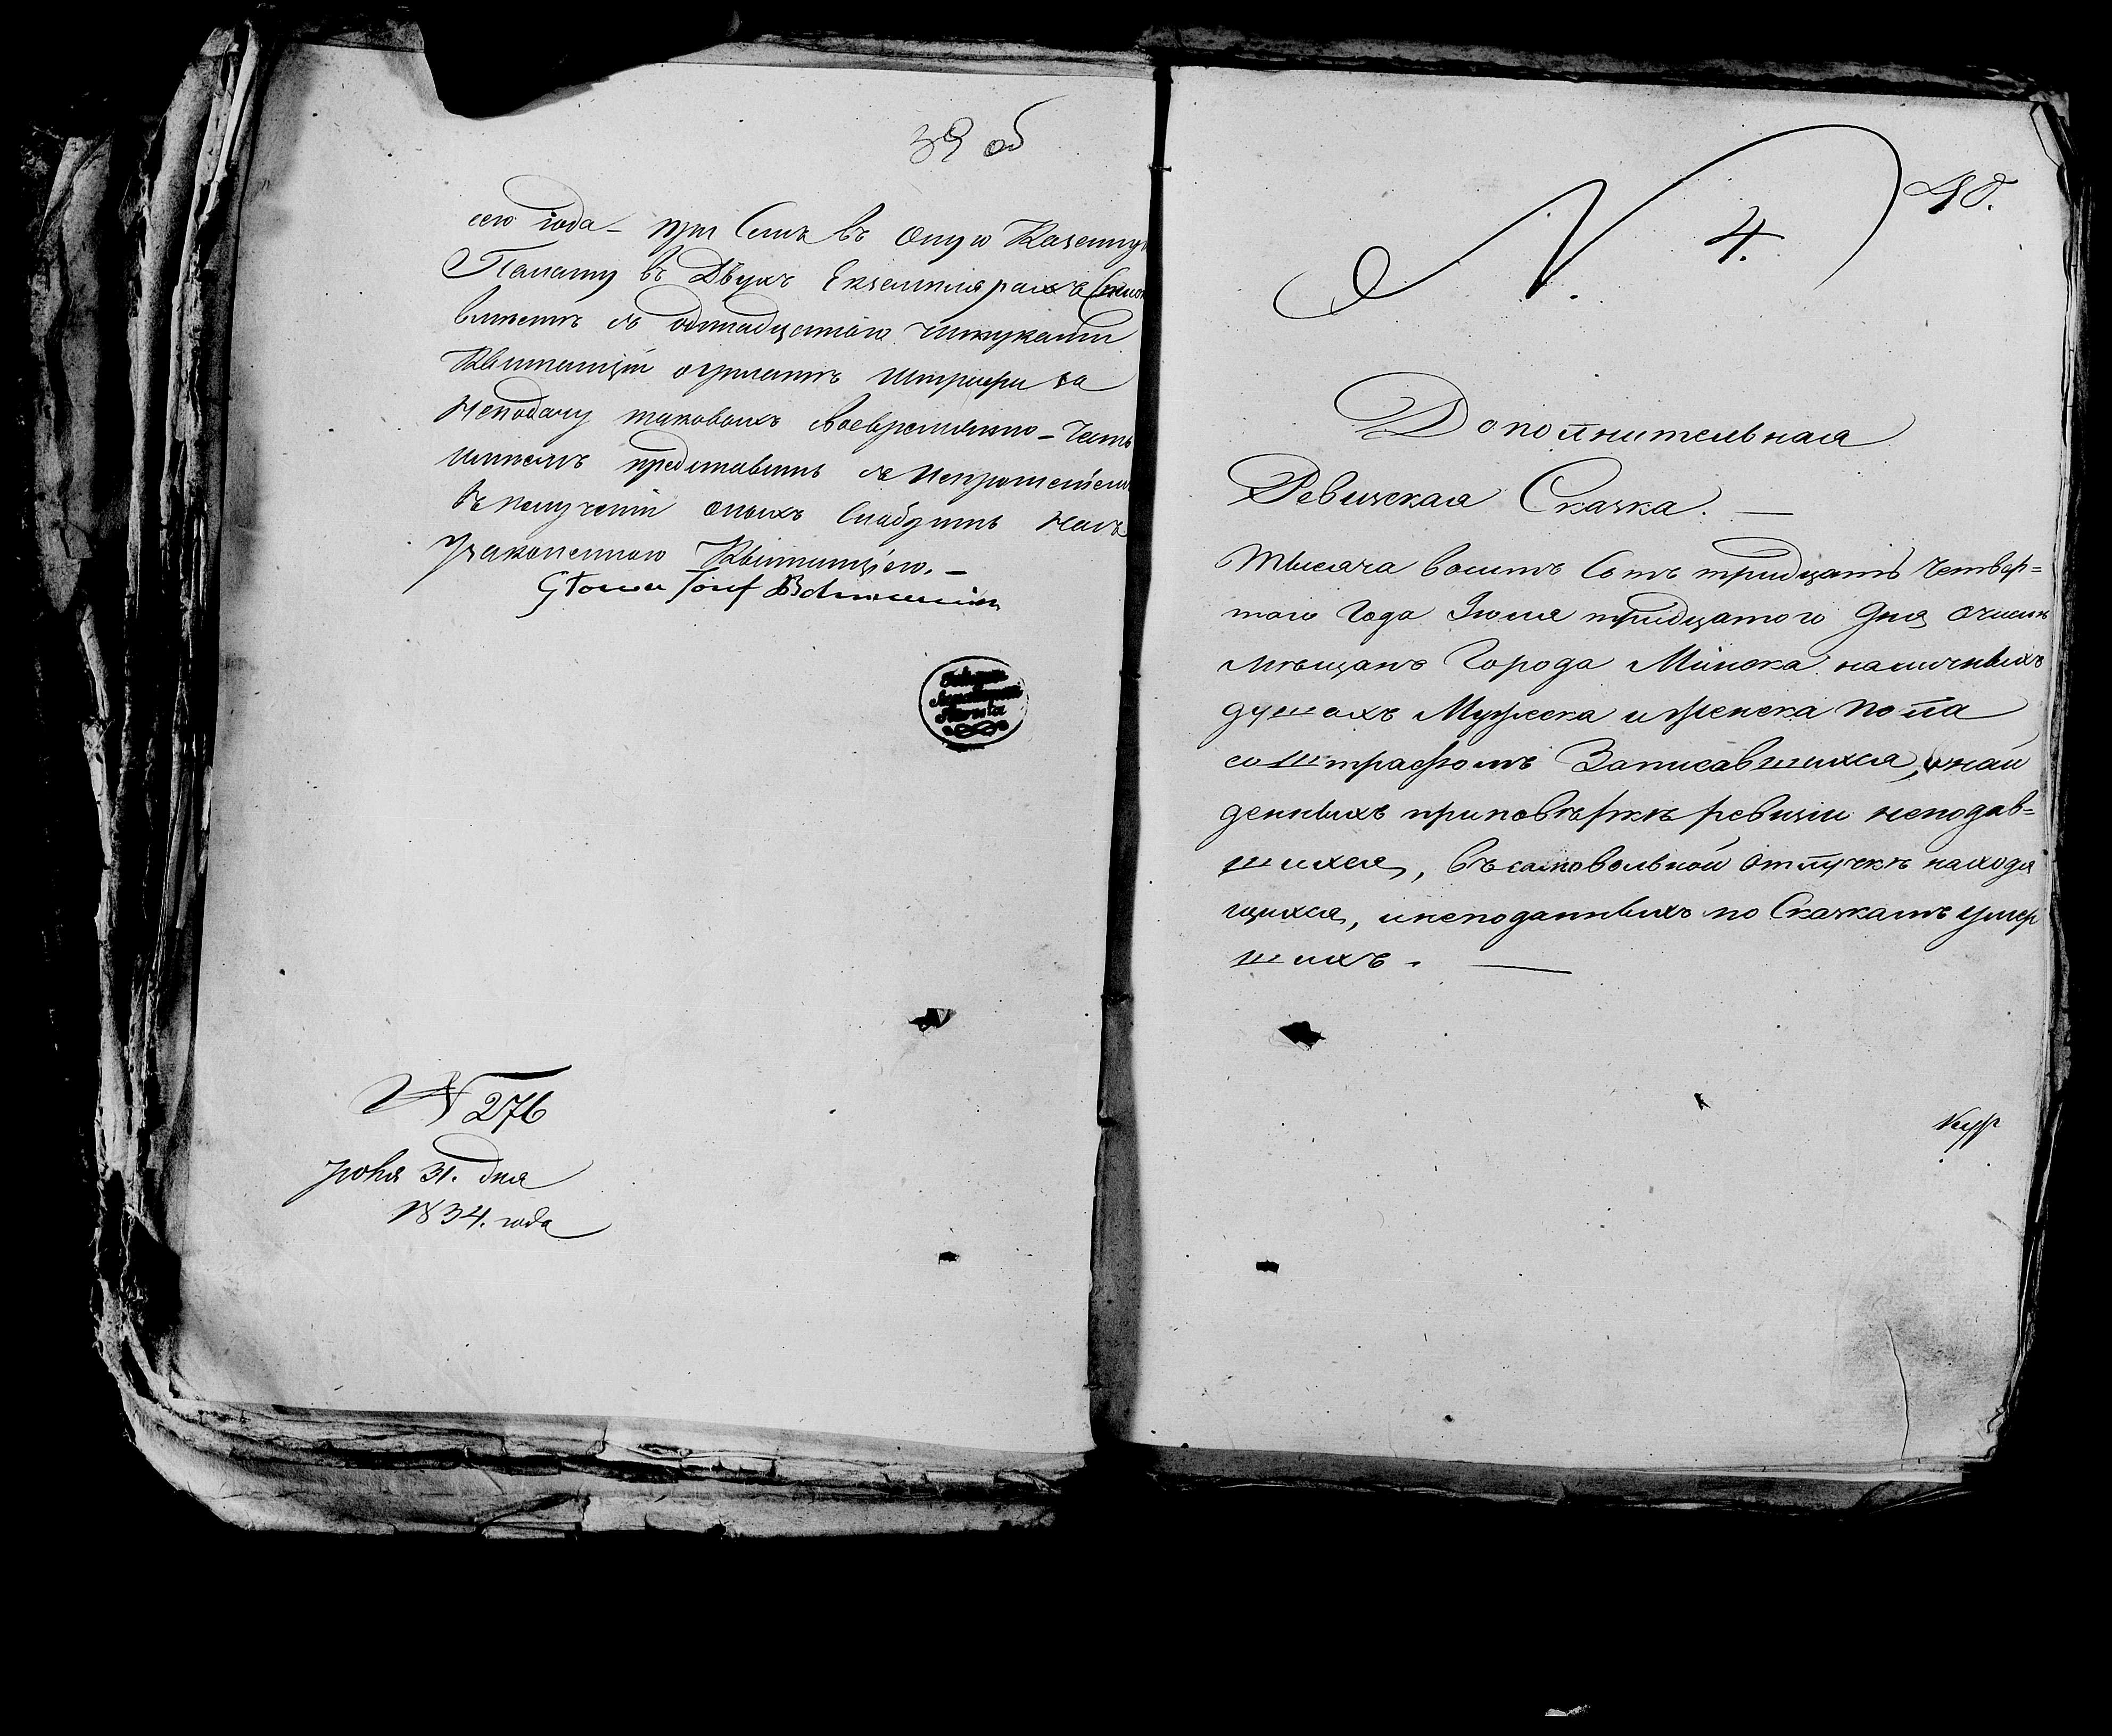 39 об
сего года – при семъ въ оную Казенную
Палату въ Двухъ Екземплярахъ
съ одинадцатью
Квитанцій о уплатѣ штрафу за
Неподачу таковыхъ своевременно – Честь
имѣемъ представить
въ полученіи оныхъ снабдить насъ
узаконенною Квитанціею. –
Głowa Józef
N 276
Іюля 31. дня
1834. года
40.
N. 4.
Дополнительная
Ревизская Сказка. —
Тысяча восемь Сотъ тридцать четвер=
таго Года Іюля тридцатого Дня о числѣ
мѣщанъ Города Минска наличныхъ
душахъ Мужеска и женска пола
со штрафомъ Записавшихся, и най
денныхъ при повѣркѣ ревизіи неподав=
шихся, въ самовольной отлучкѣ находя
щихся, и неподанныхъ по Сказкамъ умер
шихъ. —